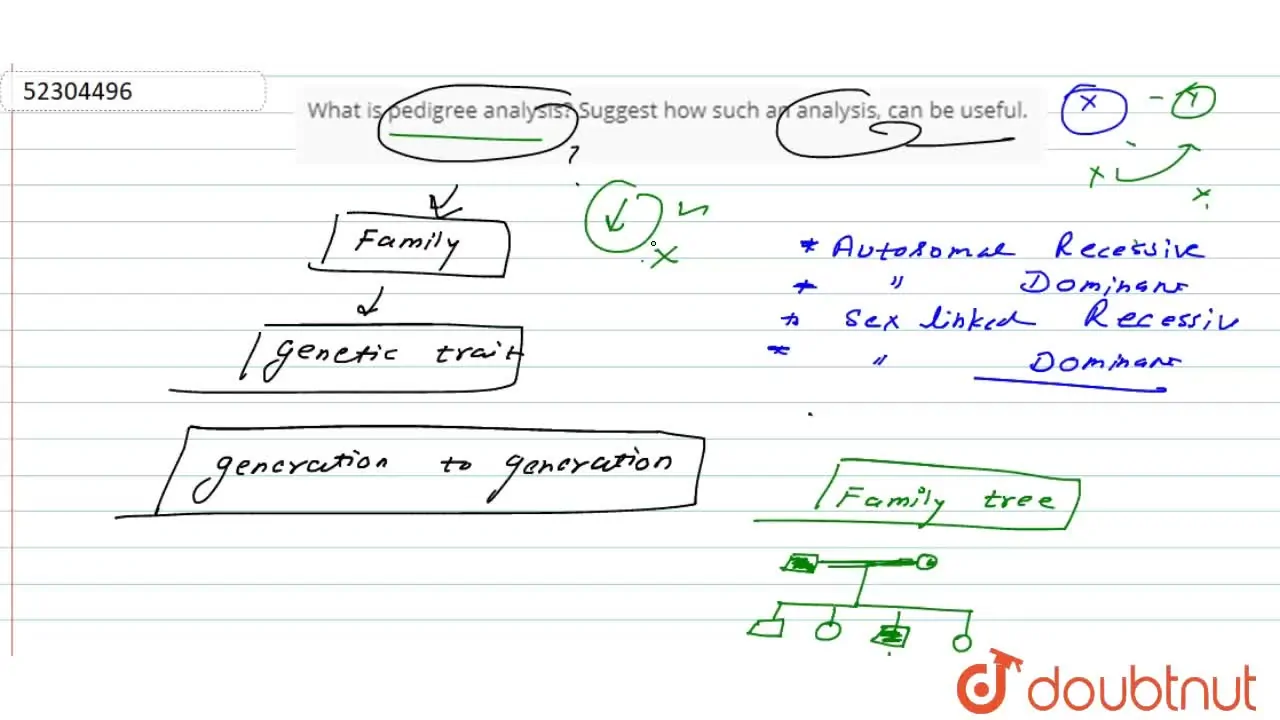 52304496
What is pedigree analysis? Suggest how such an analysis, can be useful.
?
X - Y
X
X
X
Family
genetic trait
generation to generation
* Autosomal Recessive
* " Dominant
* Sex linked Recessiv
* " Dominant
Family tree
doubtnut